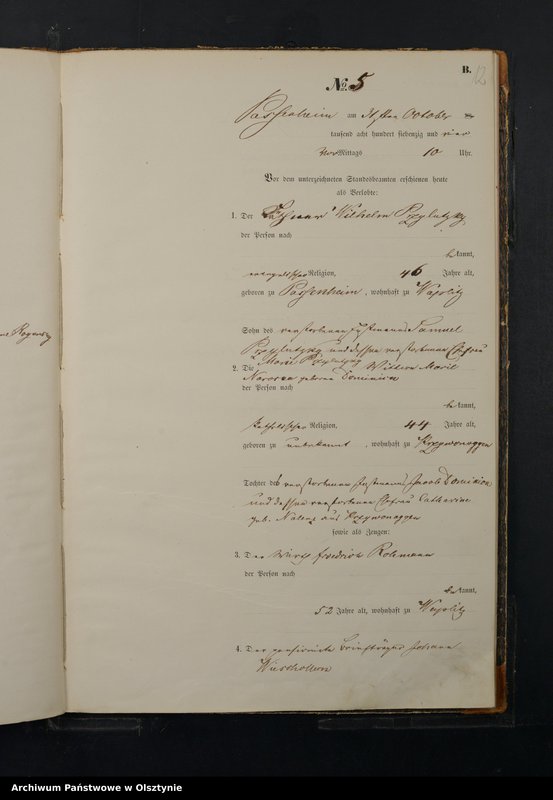 B.
12
No. 5
Passenheim am October
tausend acht hundert siebenzig und vier
Vor Mittags 10 Uhr.
Vor dem unterzeichneten Standesbeamten erschienen heute
als Verlobte:
1. Der Wilhelm Przylutzky
der Person nach
bekannt,
evangelischer Religion, 46 Jahre alt,
geboren zu Passenheim, wohnhaft zu Waplitz
Sohn des verstorbenen Samuel
Przylutzky und dessen verstorbenen Ehefrau
Marie Przylutzky
2. Die Wittwe Marie
geborene Dominion
der Person nach
bekannt,
katholischer Religion, 44 Jahre alt,
geboren zu unbekannt, wohnhaft zu Krzywonoggen
Tochter des verstorbenen Jacob Dominion
und dessen verstorbenen Ehefrau Catharine
geb. aus Krzywonoggen
sowie als Zeugen:
3. Der Wirth Friedrich
der Person nach
bekannt,
52 Jahre alt, wohnhaft zu Waplitz
4. Der Briefträger Johann